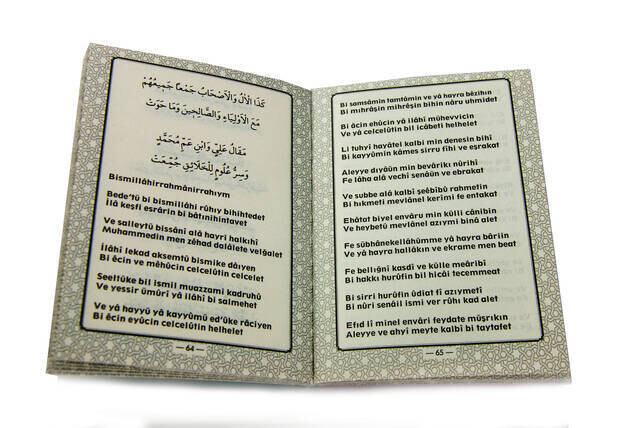 كَذَا الْاٰلُ وَالْاَصْحَابُ جَمْعًا جَمِيعُهُمْ
مَعَ الْاَوْلِيَاءِ وَالصَّالِحِينَ وَمَا حَوَتْ
مَقَالُ عَلِيٍّ وَابْنِ عَمِّ مُحَمَّدٍ
وَسِرُّ عُلُومٍ لِلْخَلَائِقِ جُمِّعَتْ
Bismillâhirrahmânirrahıym
Bede'tü bi bismillâhi rûhıy bihihtedet
İlâ keşfi esrârin bi bâtınihintavet
Ve salleytü bissâni alâ hayri halkıhî
Muhammedin men zêhad dalâlete velğalet
İlâhi lekad aksemtü bismike dâıyen
Bi êcin ve mêhûcin celcelûtin celcelet
Seeltüke bil ismil muazzami kadruhû
Ve yessir ümûrî yâ ilâhî bi salmehet
Ve yâ hayyü yâ kayyûmü ed'ûke râciyen
Bi êcin eyûcin celcelûtin helhelet
— 64 —
Bi samsâmin tamtâmin ve yâ hayra bêzihın
Bi mıhrâşin mihrêşin bihin nâru uhmidet
Bi âcin ehûcin yâ ilâhî mühevvicin
Ve yâ celcelûtin bil icâbeti helhelet
Li tuhyî havâtel kalbi min denesin bihî
Bi kayyûmin kâmes sirru fîhi ve eşrakat
Aleyye dıyâün min bevârikı nûrihî
Fe lâha alâ vechî senâün ve ebrakat
Ve subbe alâ kalbî şeêbîbü rahmetin
Bi hıkmeti mevlânel kerîmi fe entakat
Ehâtat biyel envâru min külli cânibin
Ve heybetü mevlânel azıymi binâ alet
Fe sübhânekellâhümme yâ hayra bâriin
Ve yâ hayra hallâkın ve ekrame men beat
Fe belliğnî kasdî ve külle meâribî
Bi hakkı hurûfin bil hicâi tecemmeat
Bi sirri hurûfin ûdiat fî azıymetî
Bi nûri senâil ismi ver rûhı kad alet
Efıd lî minel envâri feydate müşrıkın
Aleyye ve ahyi meyte kalbî bi taytafet
— 65 —